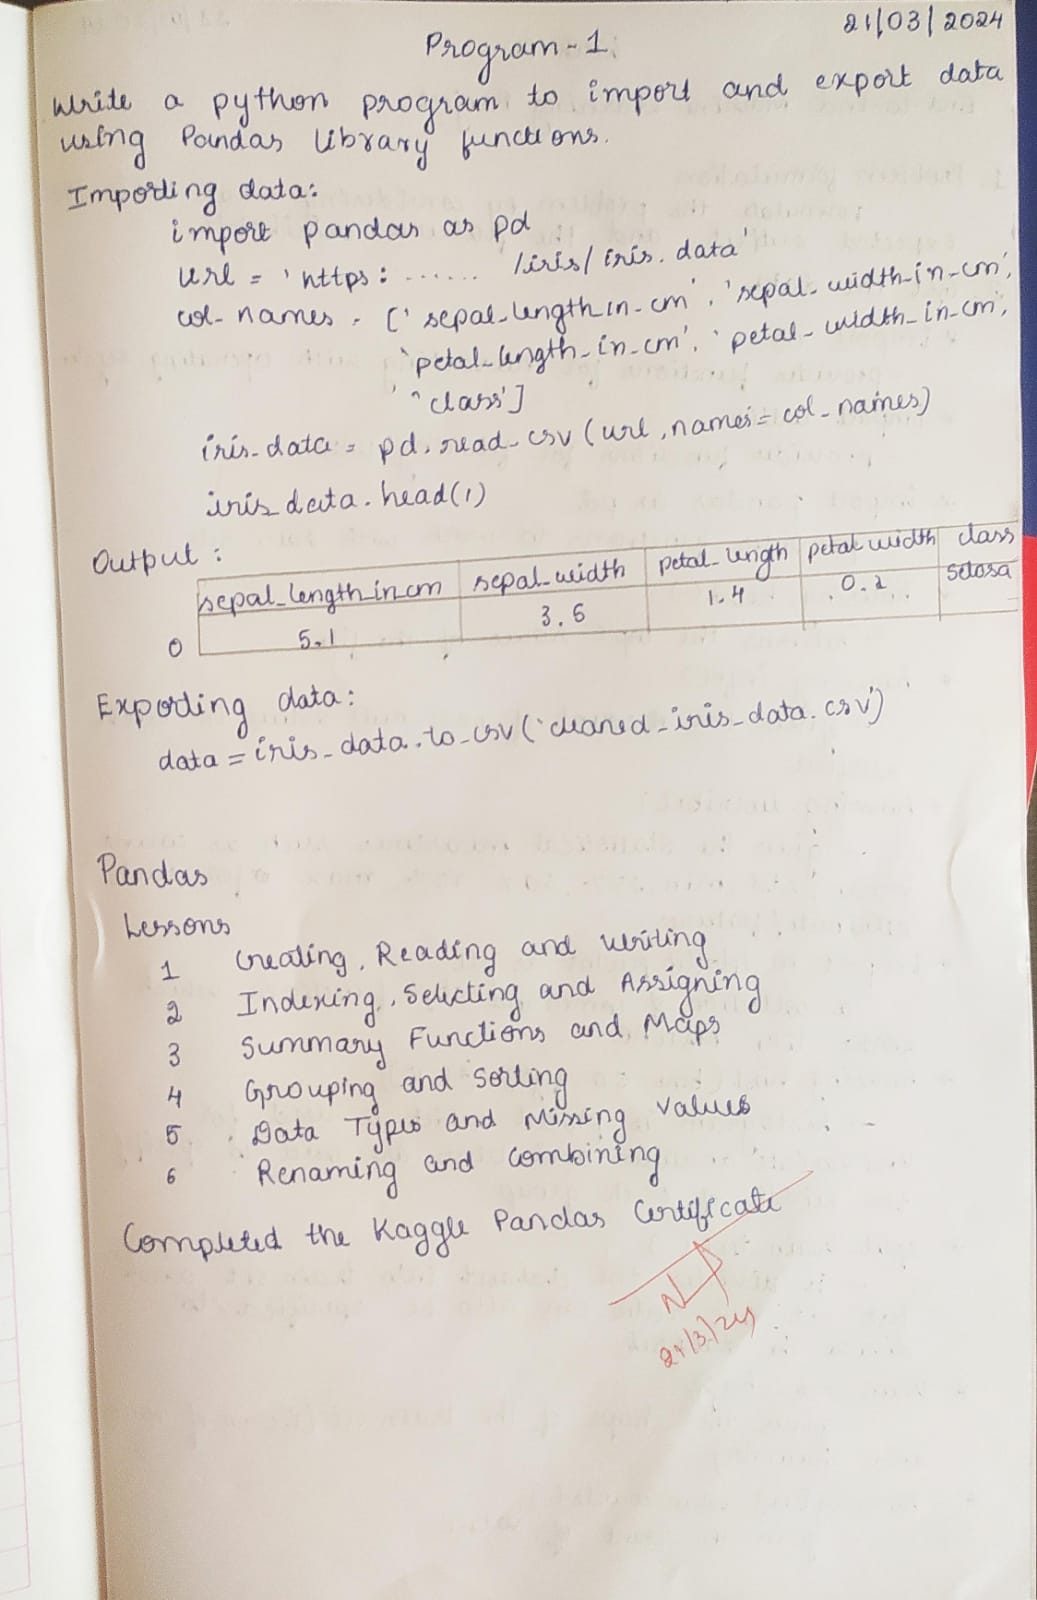 21/03/2024
Program-1
Write a python program to import and export data
using Pandas library functions.
Importing data:
import pandas as pd
url = 'https: ...... /iris/iris.data'
col_names = ['sepal_length_in_cm', 'sepal_width_in_cm',
'petal_length_in_cm', 'petal_width_in_cm',
'class']
iris_data = pd.read_csv(url, names=col_names)
iris_data.head(1)
Output:
sepal_length_in_cm sepal_width petal_length petal width class
0 5.1 3.5 1.4 0.2 Setosa
Exporting data:
data = iris_data.to_csv('cleaned_iris_data.csv')
Pandas
Lessons
1 Creating, Reading and writing
2 Indexing, Selecting and Assigning
3 Summary Functions and Maps
4 Grouping and Sorting
5 Data Types and Missing values
6 Renaming and combining
Completed the Kaggle Pandas Certificate
21/3/24